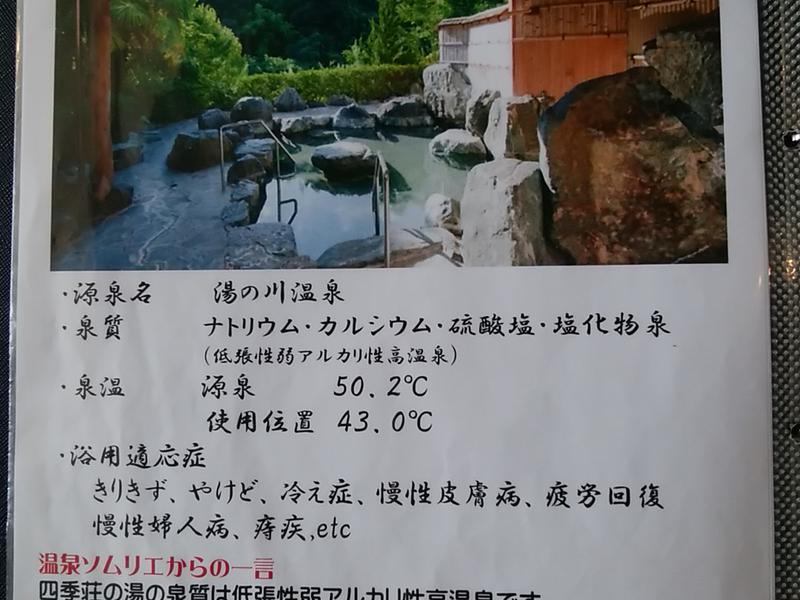 ・源泉名 湯の川温泉
・泉質 ナトリウム・カルシウム・硫酸塩・塩化物泉
(低張性弱アルカリ性高温泉)
・泉温 源泉 50.2℃
使用位置 43.0℃
・浴用適応症
きりきず、やけど、冷え症、慢性皮膚病、疲労回復
慢性婦人病、痔疾,etc
温泉ソムリエからの一言
四季荘の湯の泉質は低張性弱アルカリ性高温泉です